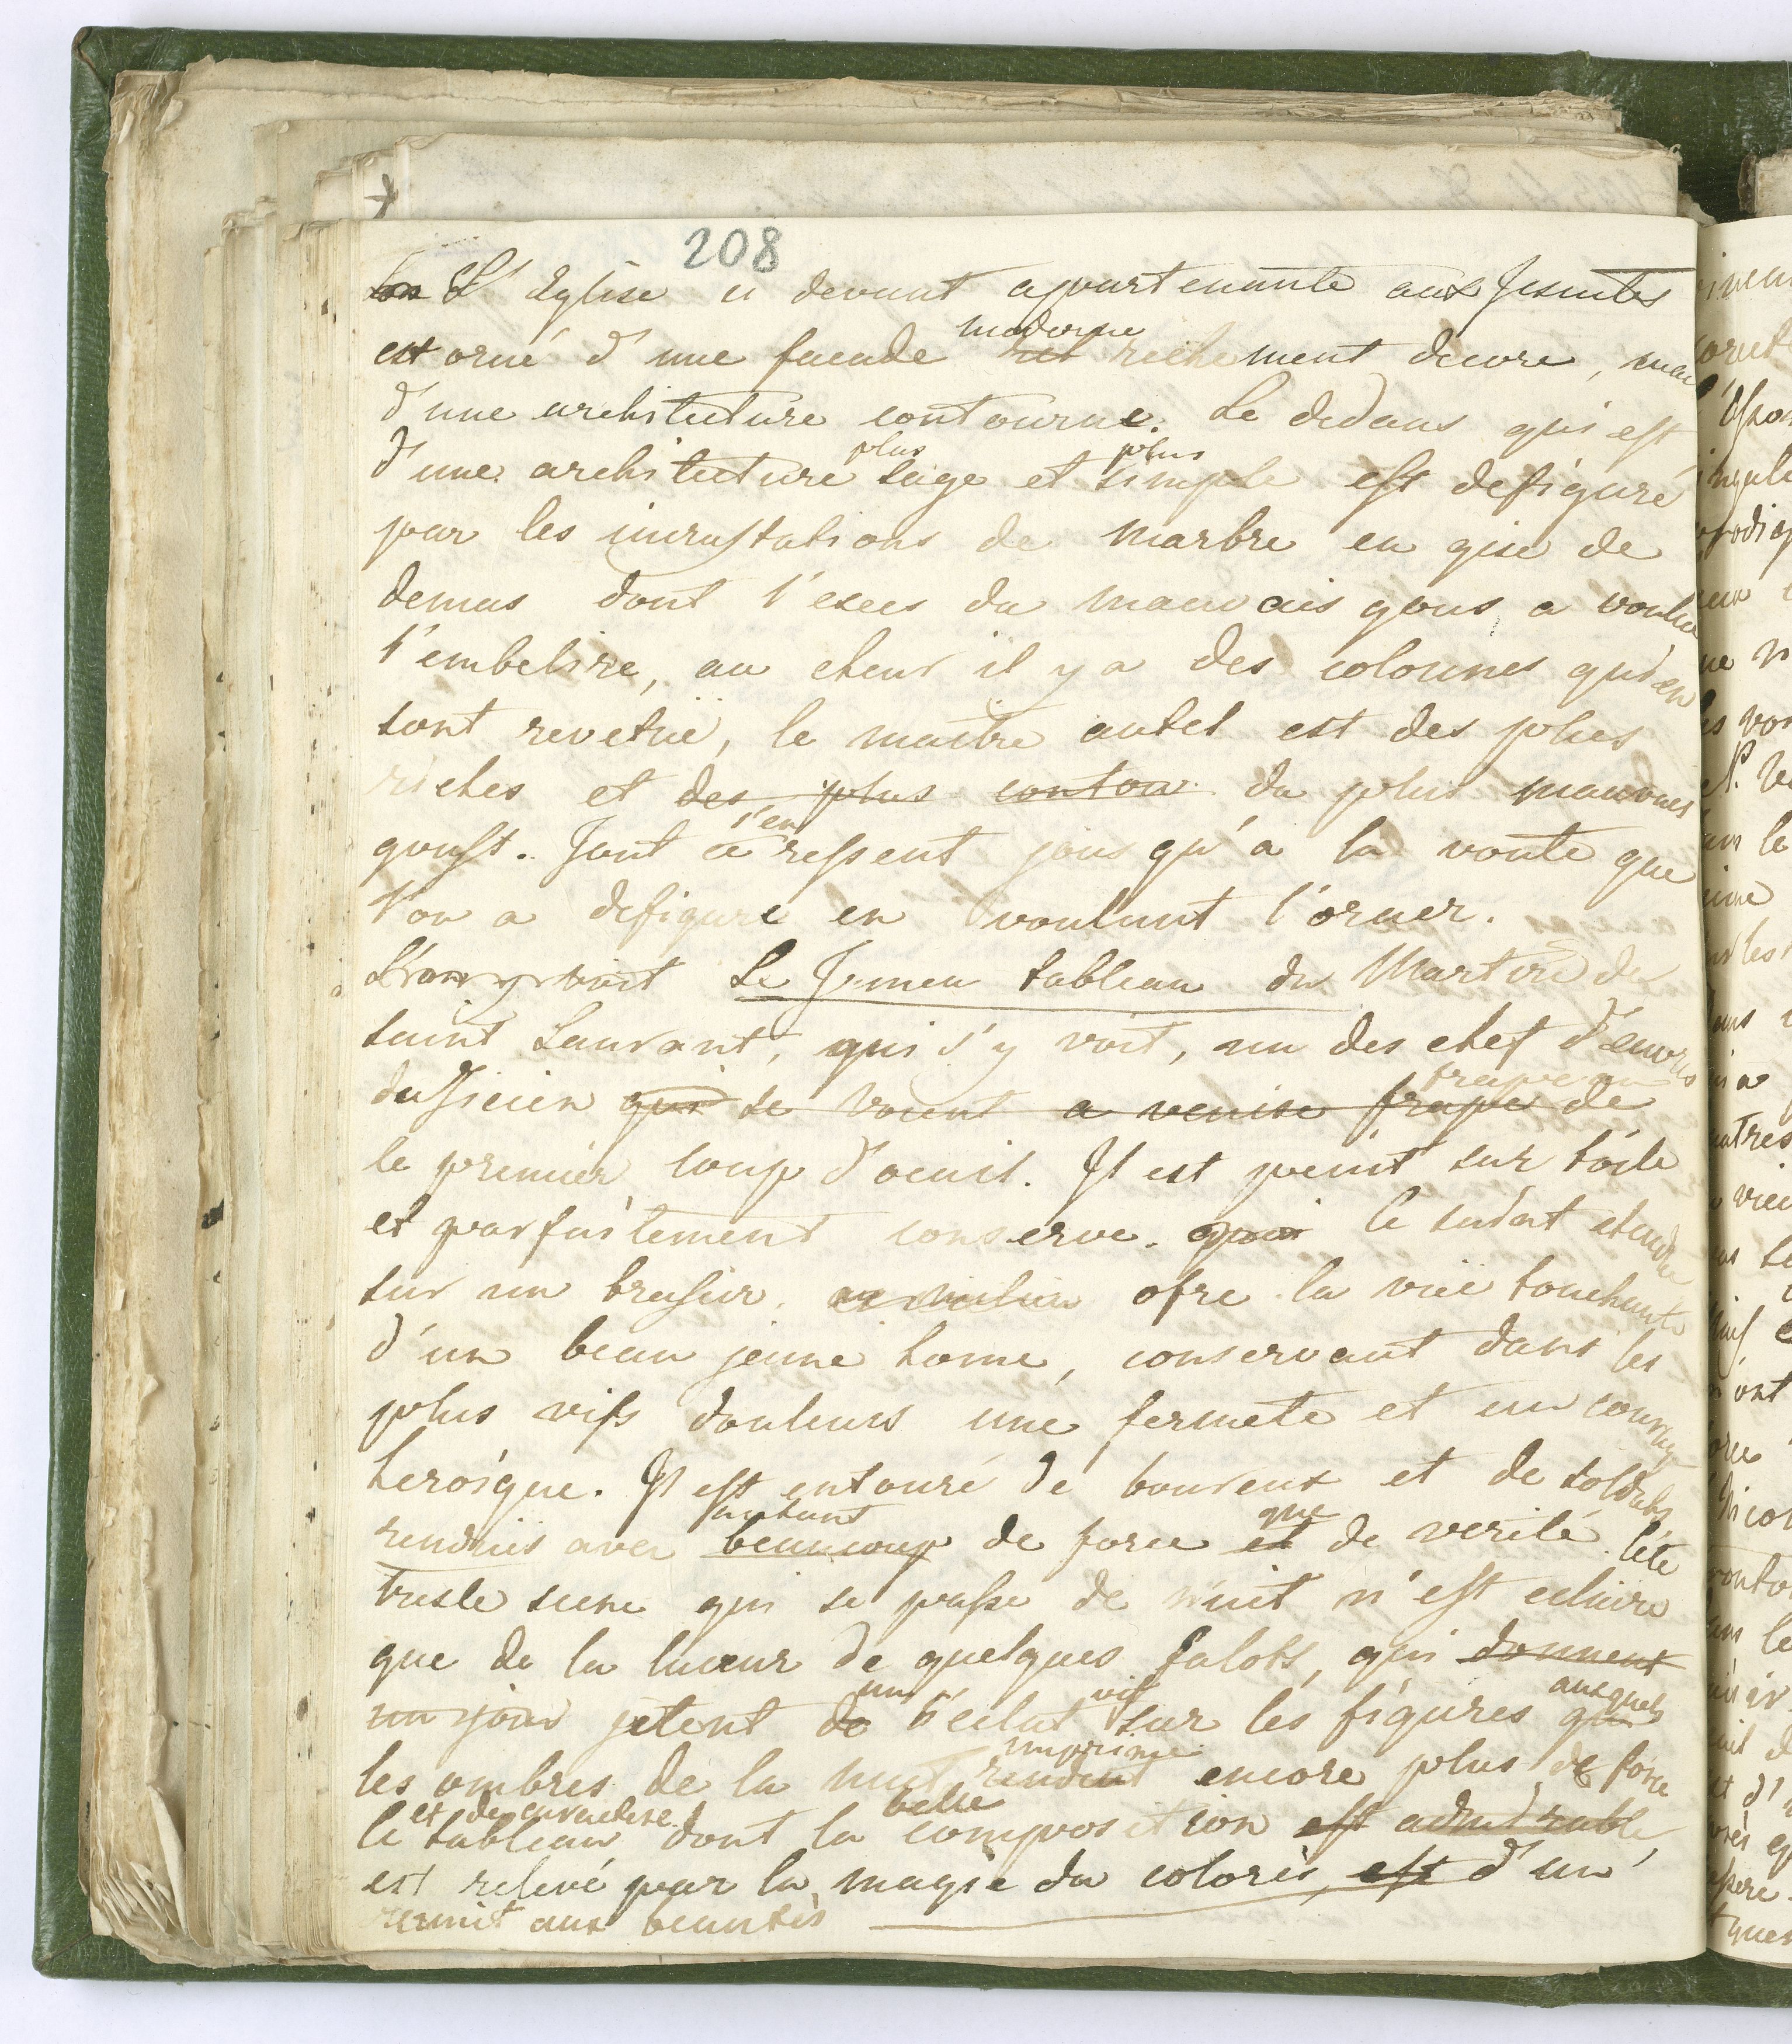 208
L'Eglise ci devant apartenante aux Jesuites
est orné d'une facade moderne richement decore, mais
d'une architecture contourne. Le dedans qui est
d'une architecture plus sage et plus simple est defiguré
par les incrustations de marbre en gise de
demas dont l'exces du mauvais gous a voulu
l'embelire, au cheur il y a des colonnes qui en
sont revetue, le maitre autel est des plus
riches et des plus contou du plus mauvais
goust. Tout s'en ressent jous qu'a la voute que
l'on a defigure en voulunt l'orner.
L'on y voit Le Fameu tableau du Martire de
saint Laurant, qui s'y voit, un des chef d'euvres
du Ticien qui se voient a venise frape de
le premier coup d'oeuil. Il est peint sur toile
et parfaitement conserve. Ce saint etendu
sur un brasier. ofre la vue touchante
d'un beau jeune home, conservant dans les
plus vifs douleurs une fermete et un courage
heroique. Il est entouré de boureux et de soldats
rendues avec autant beaucoup de force que et de verité. Cete
triste scene qui se passe de nuit n'est eclaire
que de la lueur de quelques falots, qui donnent
un jour jetent de un éclat vif sur les figures auxquels que
les ombres de la nuit imprime rendent encore plus de force
et de caractere.
Ce tableau dont la belle composition est admirable
est relevé par la magie du coloris, est d'un
reunit aux beautés